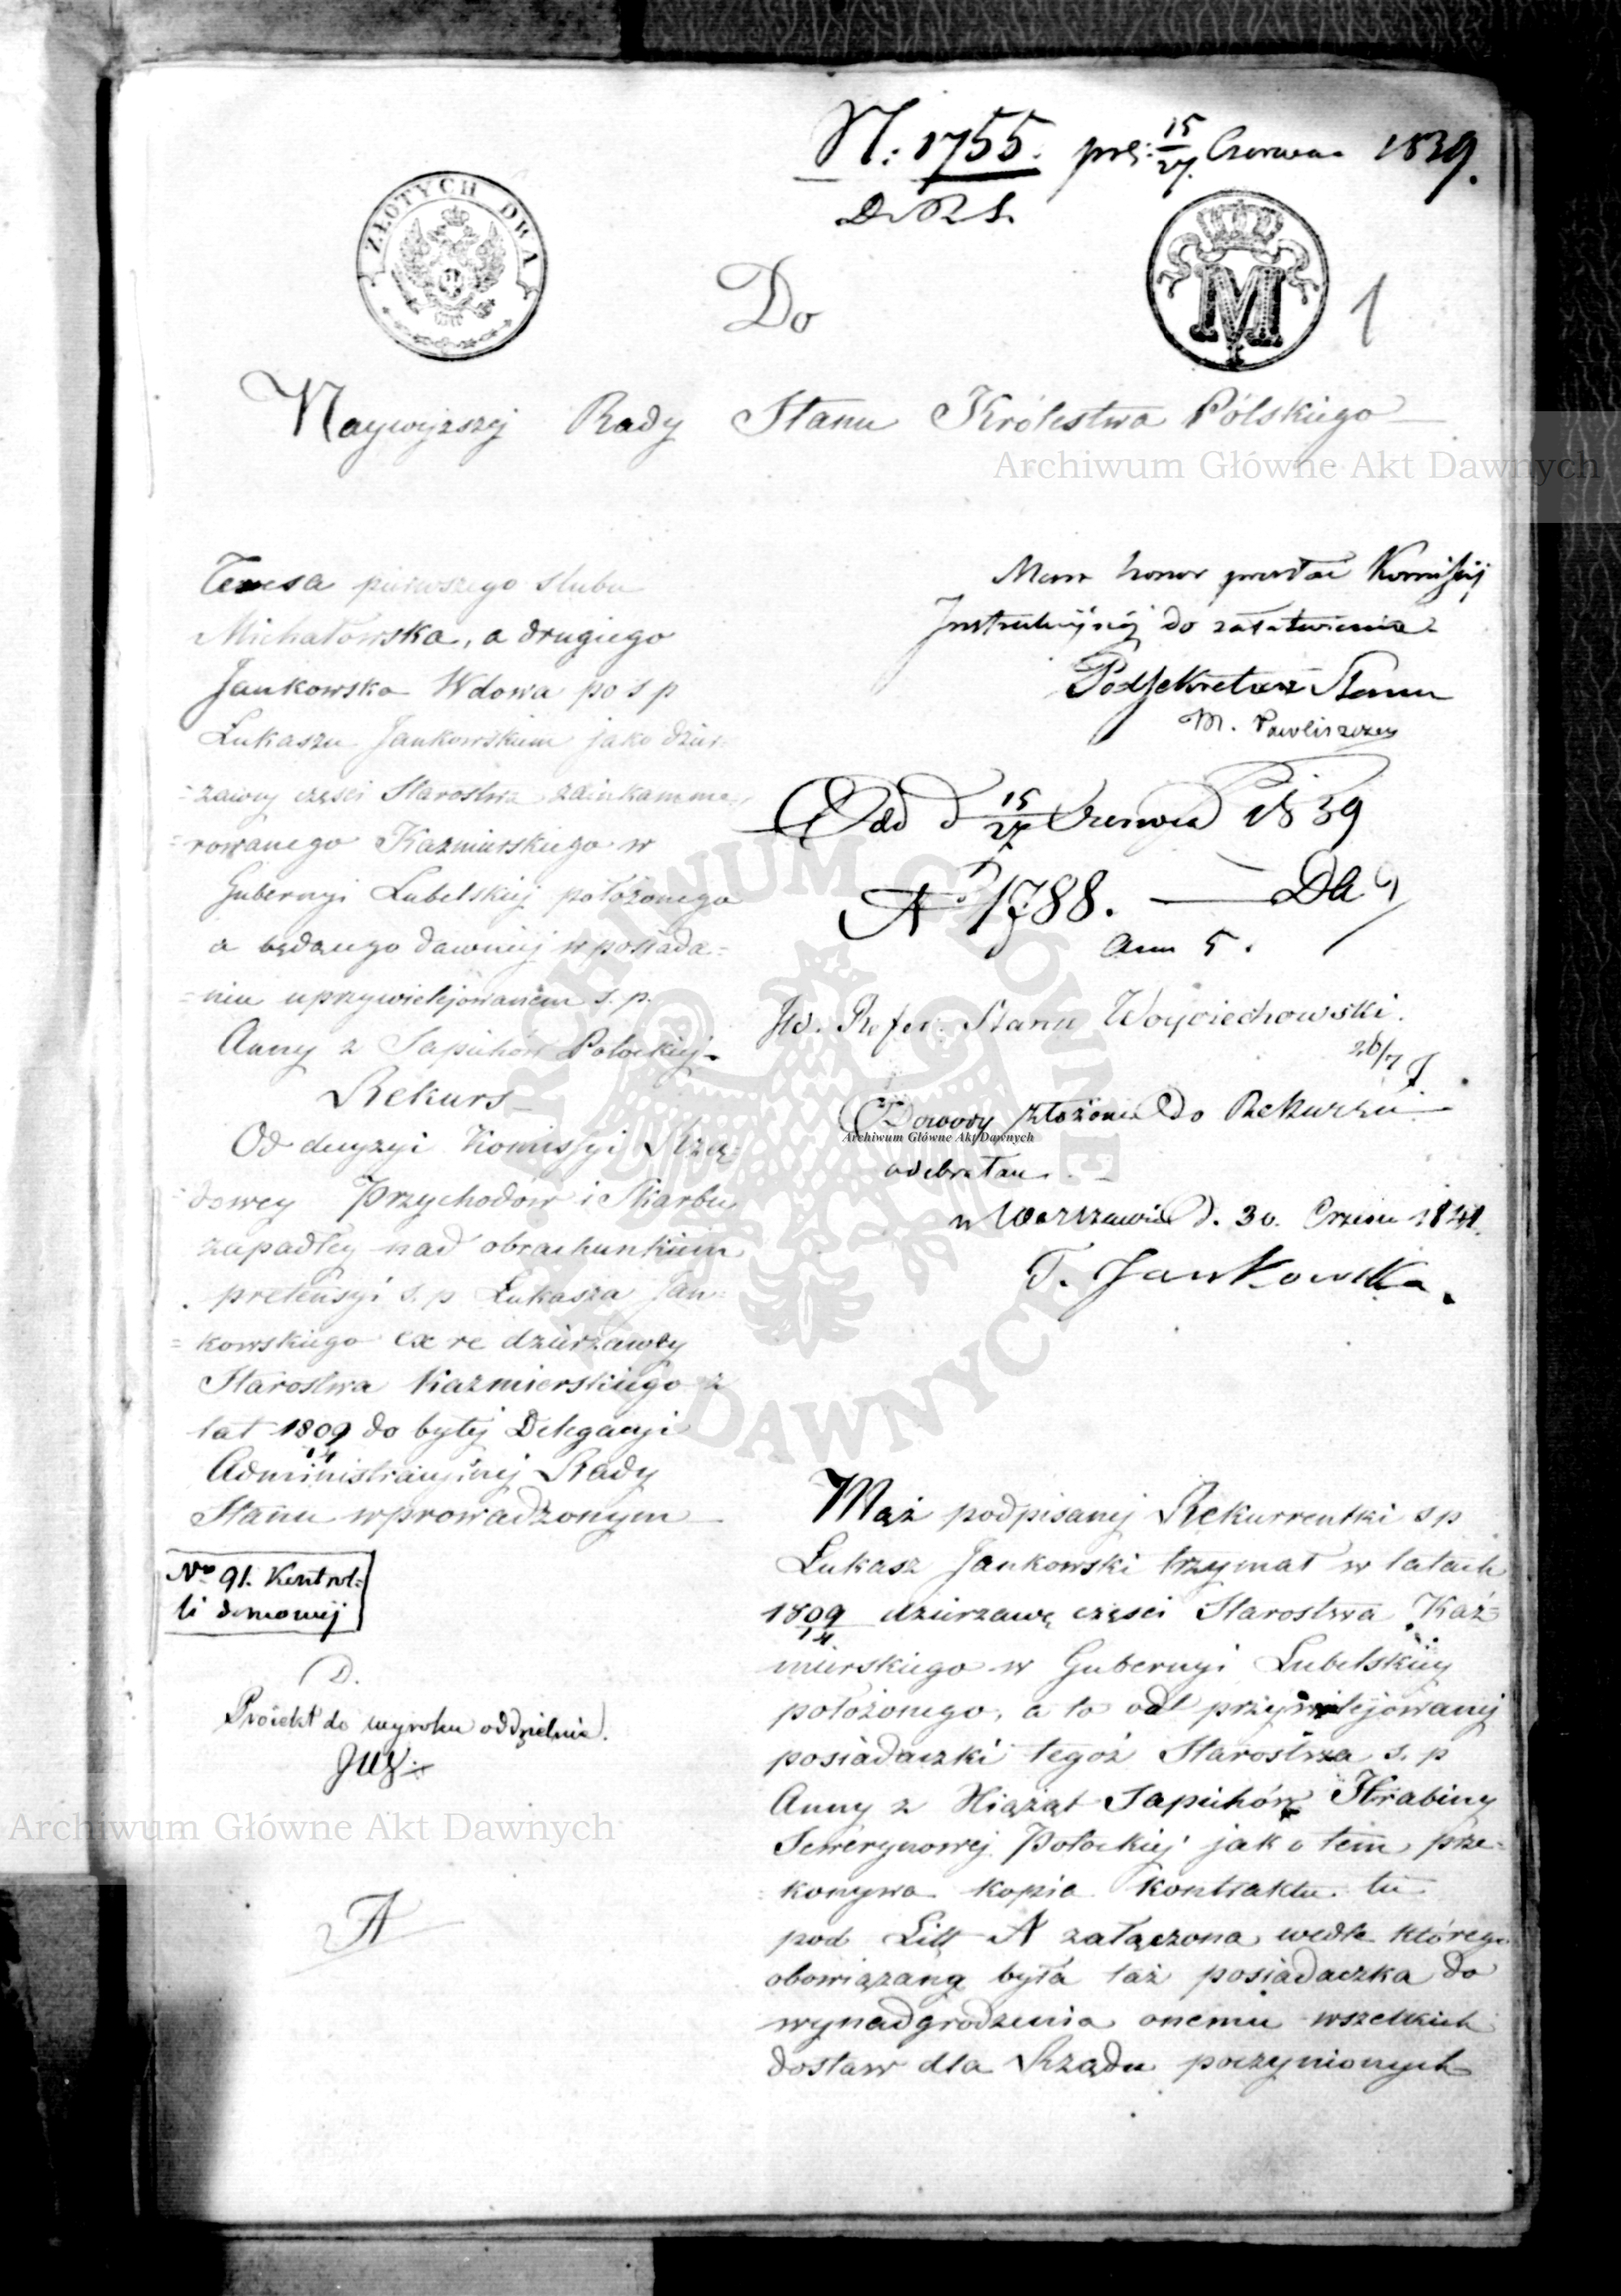 N: 1755. prs: 15/27 Czerwca 1839.
D.R.S.
ZŁOTYCH DWA
M
1
Do
Naywyższej Rady Stanu Królestwa Pólskiego
Archiwum Główne Akt Dawnych
Teresa pierwszego ślubu
Michałowska, a drugiego
Jankowska Wdowa po s p
Łukaszu Jankowskim jako dzier=
=żawcy części Starostwa zainkamme=
=rowanego Kazmierskiego w
Gubernyi Lubelskiej położonego
a będącego dawniej w posiada=
=niu uprzywielejowanem s. p.
Anny z Sapiehów Potockiej
Rekurs
Od decyzyi Komissyi Rzą=
=dowey Przychodów i Skarbu
zapadłey nad obrachunkiem
pretensyi s. p Łukasza Jan=
=kowskiego ex re dzierżawcy
Starostwa Kazmierskiego z
lat 1809/14 do byłej Delegacyi
Administracyjnej Rady
Stanu wprowadzonym
No 91. Kontrol=
li domowej
D.
Proiekt do wyroku oddzielnie.
A
Mam honor przesłać Komissyi
Instrukcyjnéj do załatwienia
Podsekretarz Stanu
M. Pawliszczew
Odd d 15/27 Czerwca 1839
No 1788.
Ann 5.
JW. Refer. Stanu Woyciechowski.
26/7
Dowody złożone do Rekursu
odebrałam.
w Warszawie d. 30. 1841.
T. Jankowska.
Mąż podpisanej Rekurrentki s p
Łukasz Jankowski trzymał w latach
1809/14 dzierżawę części Starostwa Kaź=
mierskiego w Gubernyi Lubelskiey
położonego, a to od przywilejowanej
posiadaczki tegoż Starostwa s. p
Anny z Xiążąt Sapiehów Hrabiny
Sewerynowej Potockiej jak o tem prze=
=konywa kopia kontraktu tu
pod Litt A załączona wedle którego
obowiązaną była taż posiadaczka do
wynadgrodzenia onemu wszelkich
dostaw dla Rządu poczynionych
Archiwum Główne Akt Dawnych
ARCHIWUM GŁÓWNE AKT DAWNYCH
Archiwum Główne Akt Dawnych